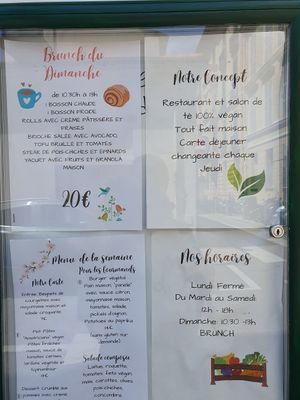 Brunch du
Dimanche
de 10h30 à 13h
1 BOISSON CHAUDE
1 BOISSON FROIDE
ROLLS AVEC CRÈME PÂTISSIÈRE ET
FRAISES
BRIOCHE SALÉE AVEC AVOCADO,
TOFU BRUILLÉ ET TOMATES
STEAK DE POIS-CHICHES ET ÉPINARDS
YAOURT AVEC FRUITS ET GRANOLA
MAISON
20€
Notre Concept
Restaurant et salon de
thé 100% végan
Tout fait maison
Carte déjeuner
changeante chaque
Jeudi
Menu de la semaine
Notre Carte
Entrée: Beignets de
courgettes avec
mayonnaise maison
et tomates
Plat: Pâtes
végan
Pâtes fraîches
maison, sauce de
tomates cerises,
végétales et
Dessert: Crumble aux
Pour les Gourmands
Burger végétal
Pain maison,
avec sauce citron,
mayonnaise maison,
tomates, salade,
pickels d'oignon
Potatoes au paprika
14€
(sans gluten sur
demande)
Salade composée
Laitue, roquette,
tomates, feta végan,
maïs, carottes, olives
pois chiches,
concombre
Nos horaires
Lundi Fermé
Du Mardi au Samedi
12h - 18h
Dimanche: 10:30 -13h
BRUNCH